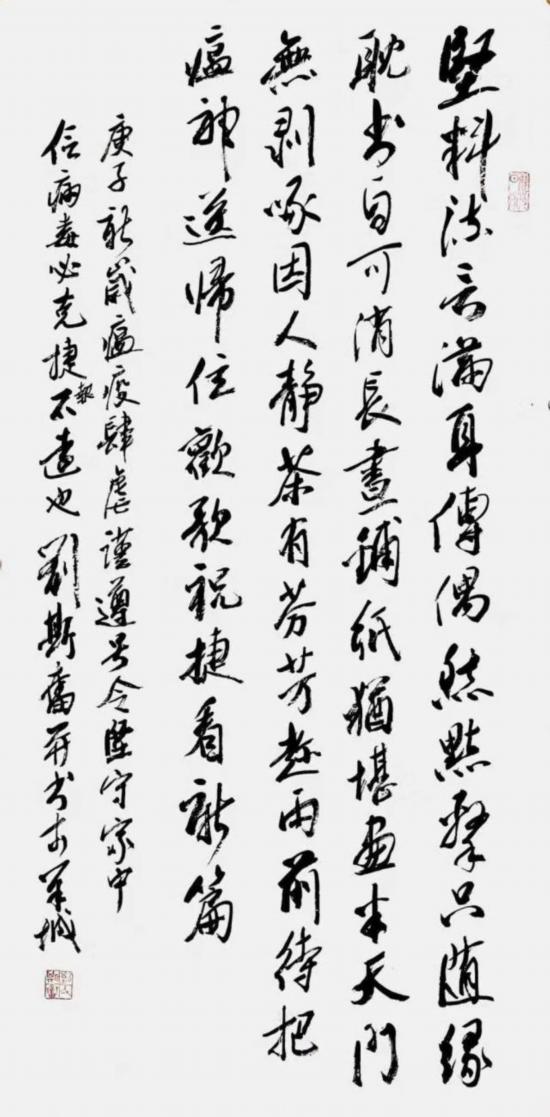 堅料流言滿耳傳偶然點擊只隨緣
耽書自可消長晝鋪紙猶堪畫半天門
無剥啄因人靜茶有芬芳趁雨前待把
瘟神送歸住歡歌祝捷看新篇
庚子新歲瘟疫肆虐謹遵号令堅守家中
信病毒必克捷報不遠也劉斯奮并書於羊城